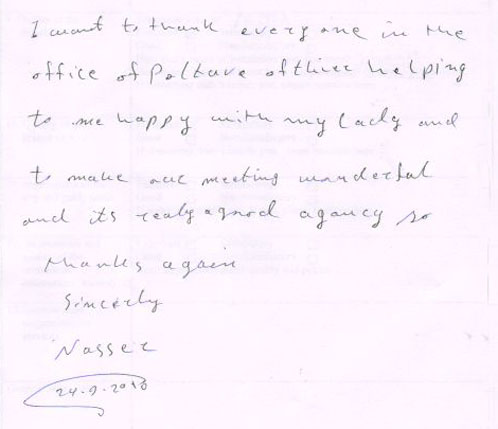 I want to thank everyone in the
office of Poltave of thier helping
to me happy with my lady and
to make our meeting wonderful
and its realy a good agancy so
thanks again
Sincerly
Nasser
24.9.2010